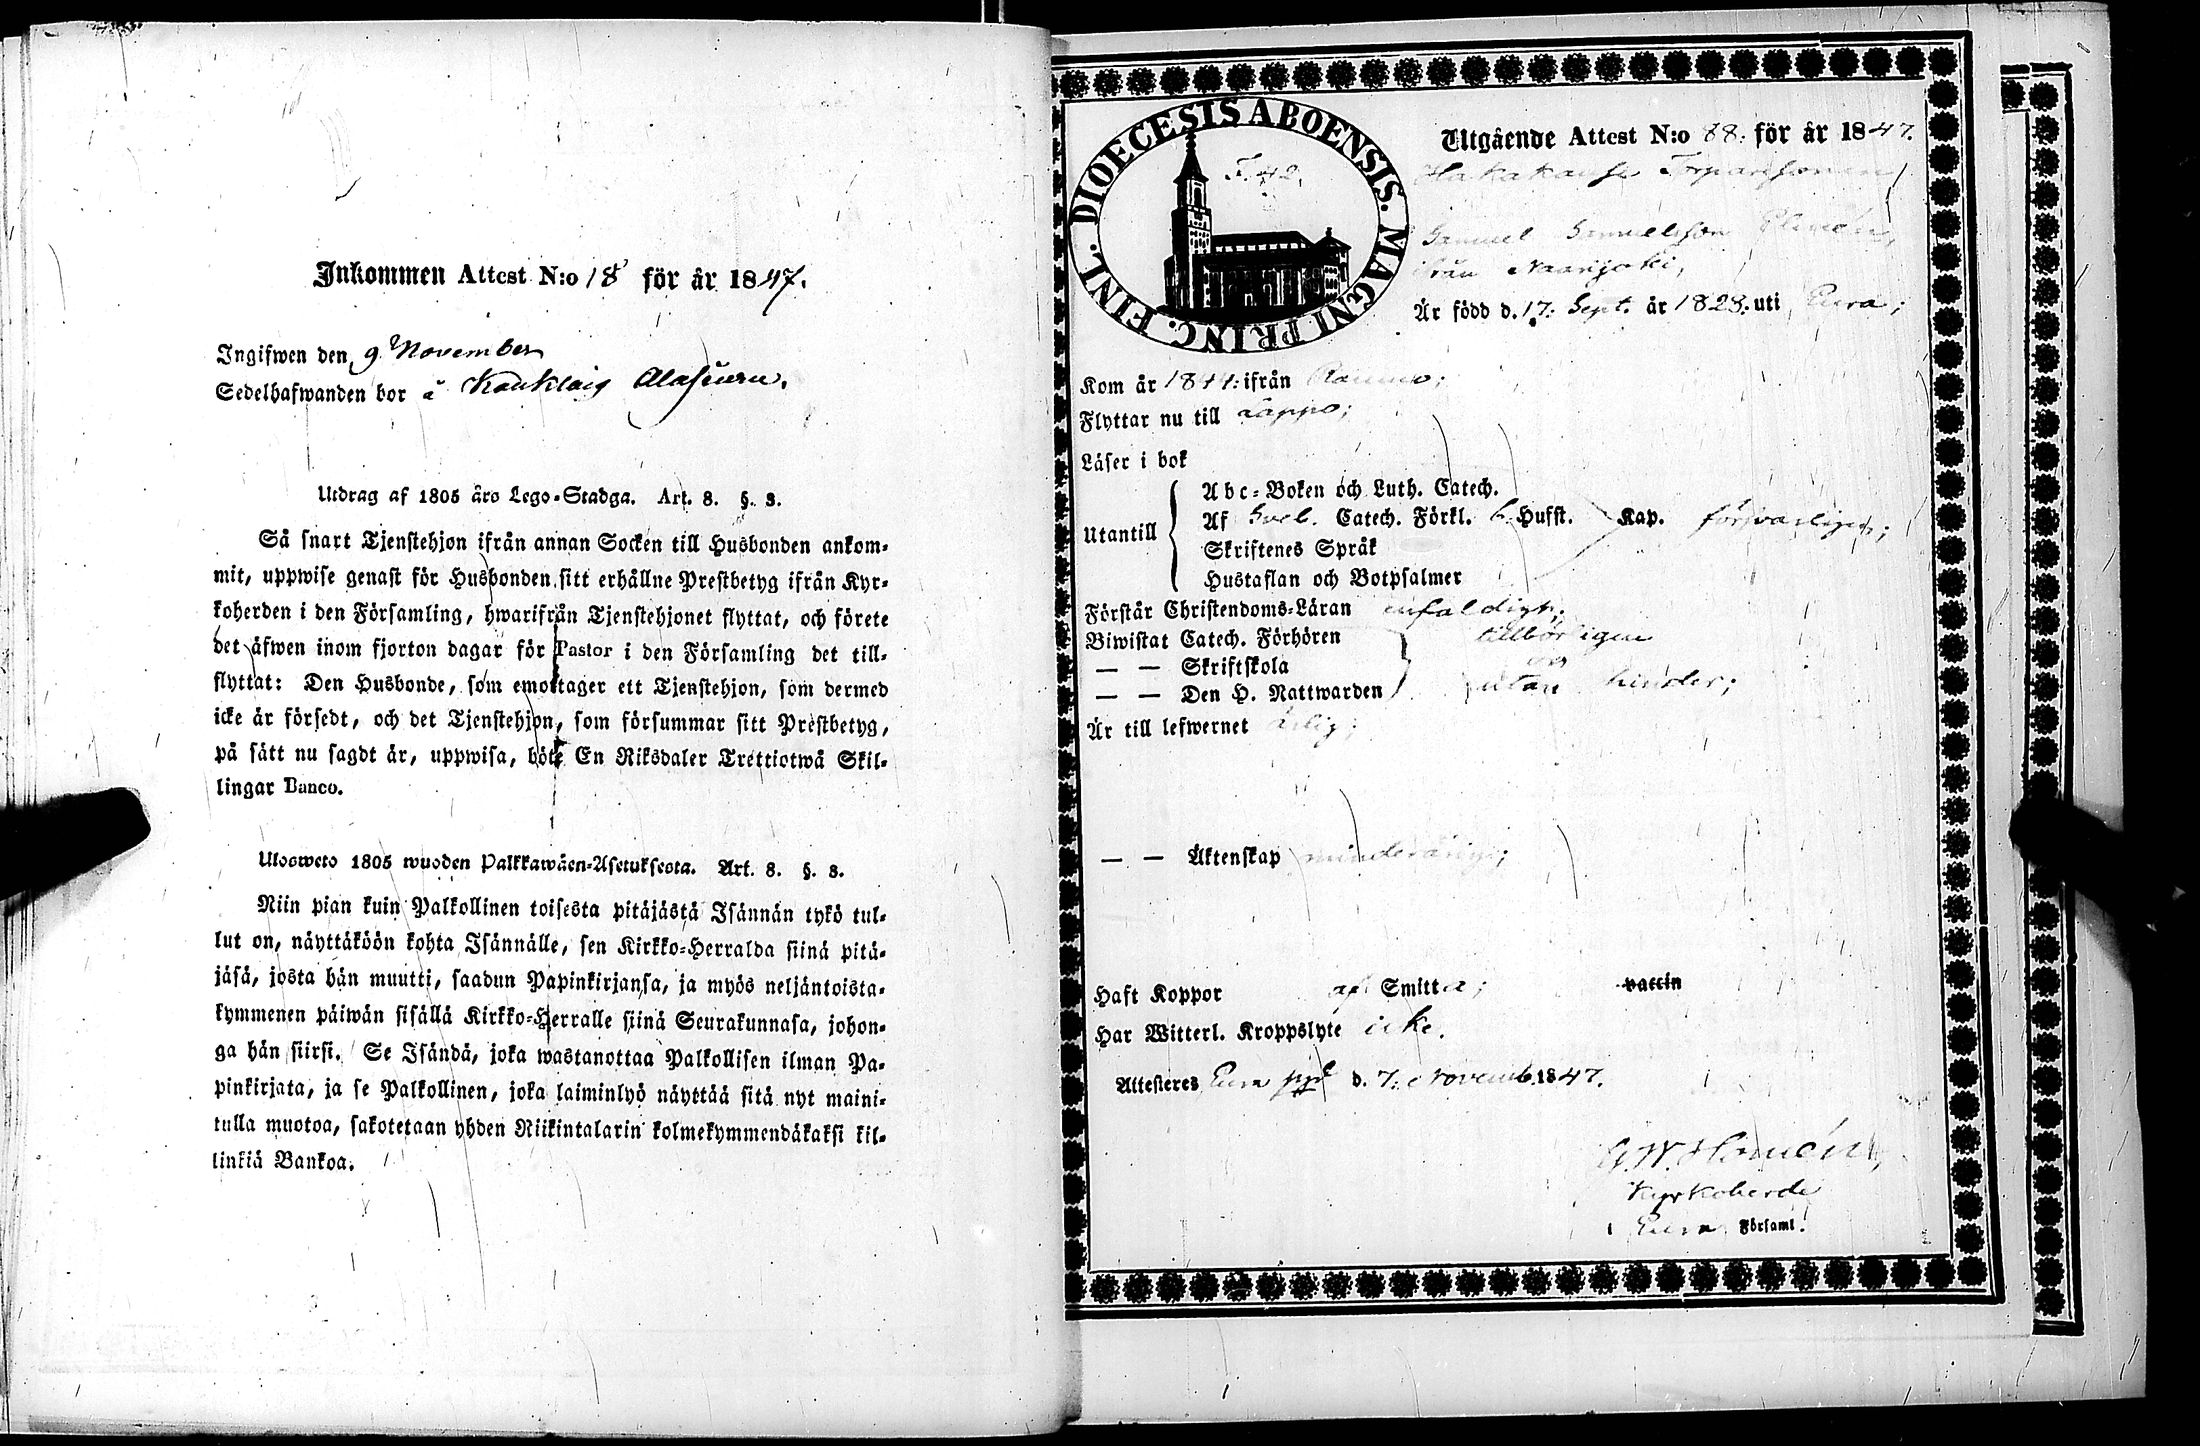 Inkommen Attest N:o 18 för år 1847.
Ingifwen den 9 November
Sedelhafwanden bor å Kauklaig Alasuuru.
Utdrag af 1805 åro Lego-Stadga. Art. 8. §. 3.
Så snart Tjenstehjon ifrån annan Socken till Husbonden ankom-
mit, uppwise genast för Husbonden sitt erhållne Prestbetyg ifrån Kyr-
koherden i den Församling, hwarifrån Tjenstehjonet flyttat, och förete
det äfwen inom fjorton dagar för Pastor i den Församling det till-
flyttat: Den Husbonde, som emottager ett Tjenstehjon, som dermed
icke är försedt, och det Tjenstehjon, som försummar sitt Prestbetyg,
på sätt nu sagdt är, uppwisa, böte En Riksdaler Trettiotwå Skil-
lingar Banco.
Uloswets 1805 wuoden Palkkawäen-Asetuksesta. Art. 8. §. 3.
Niin pian kuin Palkollinen toisesta pitäjästä Isännän tykö tul-
lut on, näyttäköön kohta Isännälle, sen Kirkko-Herralda siinä pitä-
jäsä, josta hän muutti, saadun Papinkirjansa, ja myös neljäntoista-
kymmenen päiwän sisällä Kirkko-Herralle siinä Seurakunnasa, johon-
ga hän siirsi. Se Isändä, joka wastanottaa Palkollisen ilman Pa-
pinkirjata, ja se Palkollinen, joka laiminlyö näyttää sitä nyt maini-
tulla muotoa, sakotetaan yhden Riikintalarin kolmekymmendäkaksi kil-
linkiä Bankoa.
DIOECESIS ABOENSIS. MAGNI PRINC. FINL.
F. 42.
Utgående Attest N:o 88. för år 1847.
Torparesonen
Samuel Samuelsson
ifrån Naarijoki,
Är född d. 17. Sept. år 1828. uti Eura;
Kom år 1844. ifrån Raumo;
Flyttar nu till Lappo;
Läser i bok
Utantill
Abc-Boken och Luth. Catech.
Af Sveb. Catech. Förkl. 6 Hufst. Kap. försvarligen;
Skriftenes Språk
Hustaflan och Botpsalmer
Förstår Christendoms-Läran enfaldigt;
Biwistat Catech. Förhören tillbörligen
— — Skriftskola och
— — Den H. Nattwarden utan hinder;
Är till lefwernet ärlig;
— — Äktenskap minderårig;
Haft Koppor af Smitta; vaccin
Har Witterl. Kroppslyte icke.
Attesteres Eura d. 7. Novemb. 1847.
Kyrkoherde
i Eura Församl.